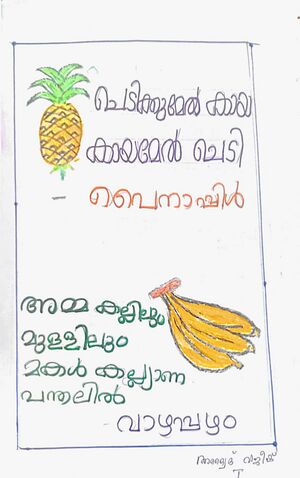 ചെടിക്കുമേൽ കായ
കായമേൽ ചെടി
- പൈനാപ്പിൾ
അമ്മ കല്ലിലും
മുള്ളിലും
മകൾ കല്ല്യാണ
പന്തലിൽ
വാഴപ്പഴം